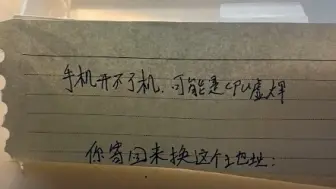 手机开不了机,可能是CPU虚焊
你寄回来换这个地址: